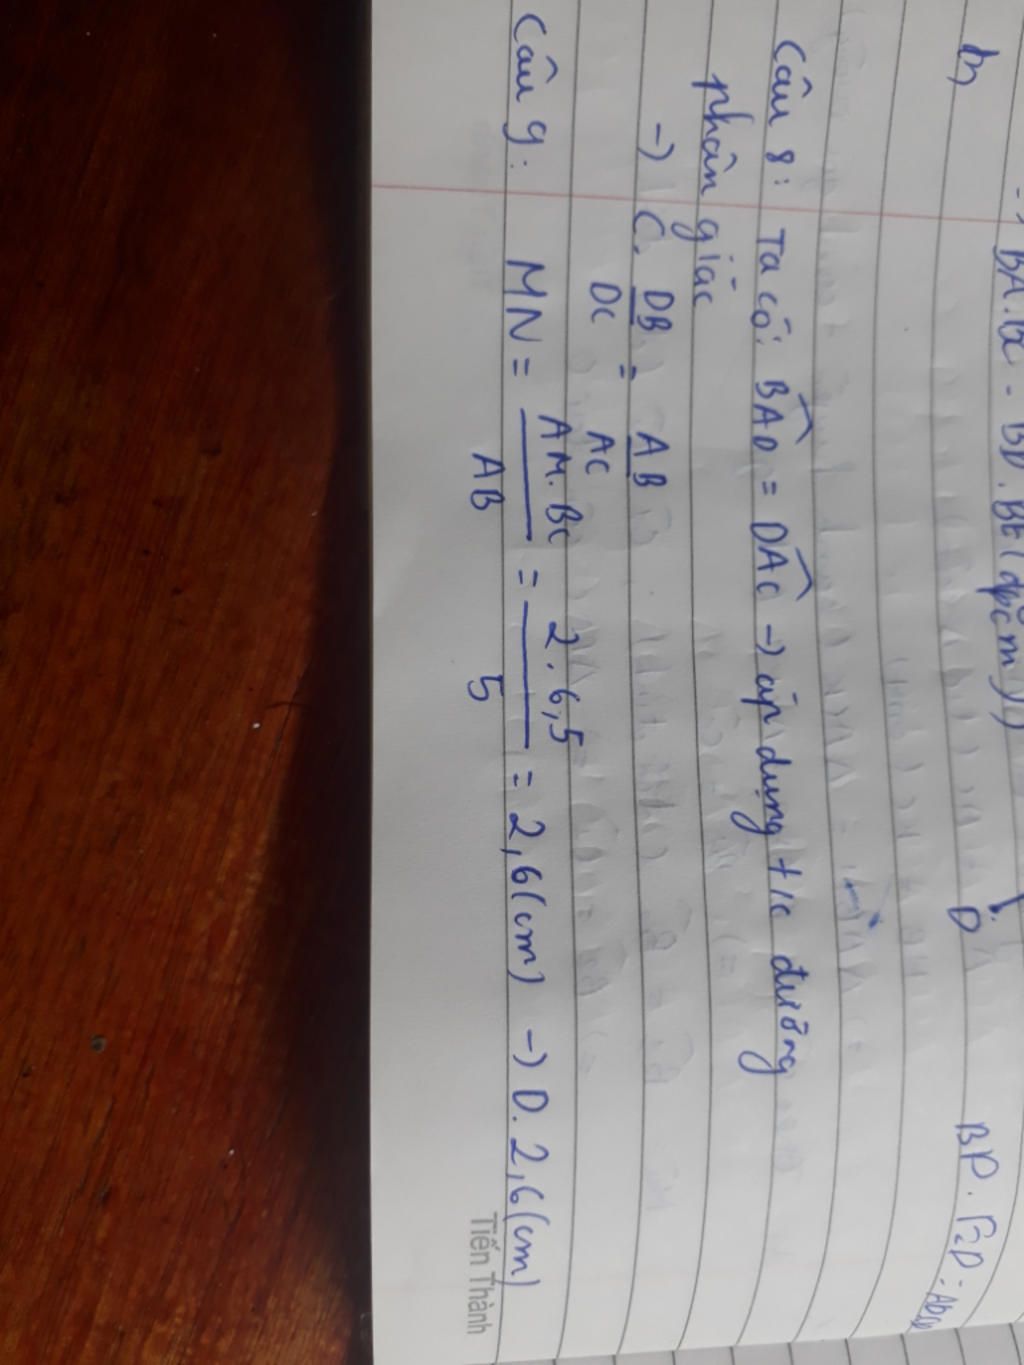 BA.BC = BD.BE (đpcm)
D
BP.
Câu 8: Ta có: BAD = DAC -> áp dụng t/c đường
phân giác
-> C. DB/DC = AB/AC
Câu 9: MN = AM.BC/AB = 2.6,5/5 = 2,6(cm) -> D. 2,6(cm)
Tiến Thành